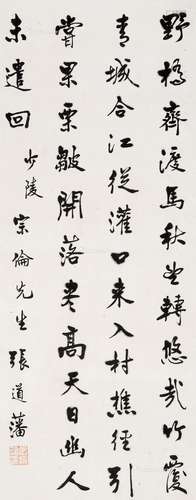 野橋齊渡馬秋望轉悠哉竹覆
青城合江從灌口来入村樵徑引
嘗果栗皺開落盡高天日幽人
未遣回 少陵 宗倫先生 張道藩